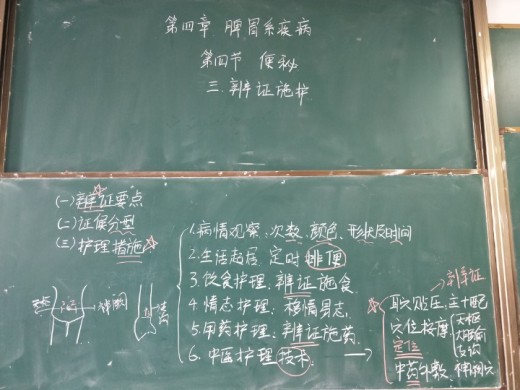 第四章 脾胃系疾病
第四节 便秘
三.辨证施护
(一)辨证要点
(二)证候分型
(三)护理措施
1.病情观察:次数、颜色、形状及时间
2.生活起居:定时排便
3.饮食护理:辨证施食
4.情志护理:稳情易志
5.用药护理:辨证施药
6.中医护理技术
辨证
耳穴贴压:主+配
穴位按摩
天枢
大肠俞
定位
中药外敷:神阙穴
神阙